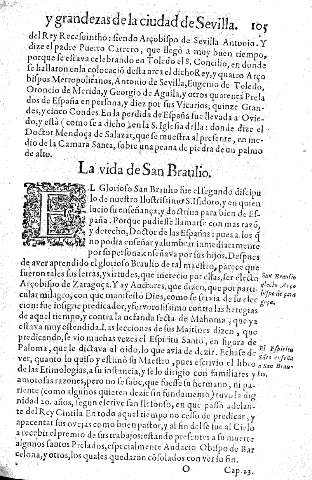 y grandezas de la ciudad de Sevilla. 105
del Rey Recesuintho: siendo Arçobispo de Sevilla Antonio. Y
dize el padre Puerto Carrero, que llegó a muy buen tiempo,
porque se estava celebrando en Toledo el 8. Concilio, en donde
se hallaron en la colocació desta arca el dicho Rey, y quatro Arço
bispos Metropolitanos, Antonio de Sevilla, Eugenio de Toledo,
Oroncio de Merida, y Georgio de Aguila, y otros quarenta Prela
dos de España en persona, y diez por sus Vicarios; quinze Gran-
des, y cinco Condes En la perdida de España fue llevada a Ovie-
do, y está (como se a dicho) en la S. Iglesia della: donde dize el
Doctor Mendoça de Salazar, que se muestra al presente, en me-
dio de la Camara Santa, sobre una peana de piedra de un palmo
de alto.
La vida de San Braulio.
EL Glorioso San Braulio fue el segundo discipu
lo de nuestro Illustrissimo S. Isidoro, y en quien
lucio su enseñança, y doctrina para bien de Es-
paña. Porque pudiesse llamarse con mas razõ,
y derecho, Doctor de las Españas: pues a los q̃
no podia enseñar y alumbrar inmediatamente
por su persona, enseñava por sus hijos. Despues
de aver aprendido el glorioso Braulio de tal maestro, parece que
fueron tales sus letras, y virtudes, que merecio por ellas, ser electo
Arçobispo de Zaragoça. Y ay Auctores, que dizen, que por parti-
cular milagro; con que manifestó Dios, como se servia de su elec
cion: fue insigne predicador, y fervorosissimo contra las heregias
de aquel tiempo, y contra la nefanda secta de Mahoma; que ya
estava muy estendida. Las lecciones de sus Maitines dizen, que
predicando, se vio muchas vezes el Espiritu Santo, en figura de
Paloma, que le dictava al oido, lo que avia de dezir. Echase de
ver, quanto lo quiso y estimó su Maestro, pues escrivio el libro
de las Etimologias, a su instancia, y se lo dirigio con familiares y
amorosas razones, pero no se sabe, que fuesse su hermano, ni pa-
riente (como algunos quieren dezir sin fundamento) tuvo la dig
nidad 20. años, segun escrive san Ilefonso, en que passó adelan-
te del Rey Cintila En todo aquel tiempo no cesso de predicar, y
apacentar sus ovejas como buen pastor, y al fin del se fue al Cielo
a recebir el premio de sus trabajos: estando presentes a su muerte
algunos santos Prelados, especialmente Audacto Obispo de Bar
celona, y otros, los quales quedaron cõsolados con ver su fin.
San Braulio
electo Arço
bispo de zara
goça.
El Espiritu
Sãto enseña
a San Brau-
lio.
O Cap. 23.